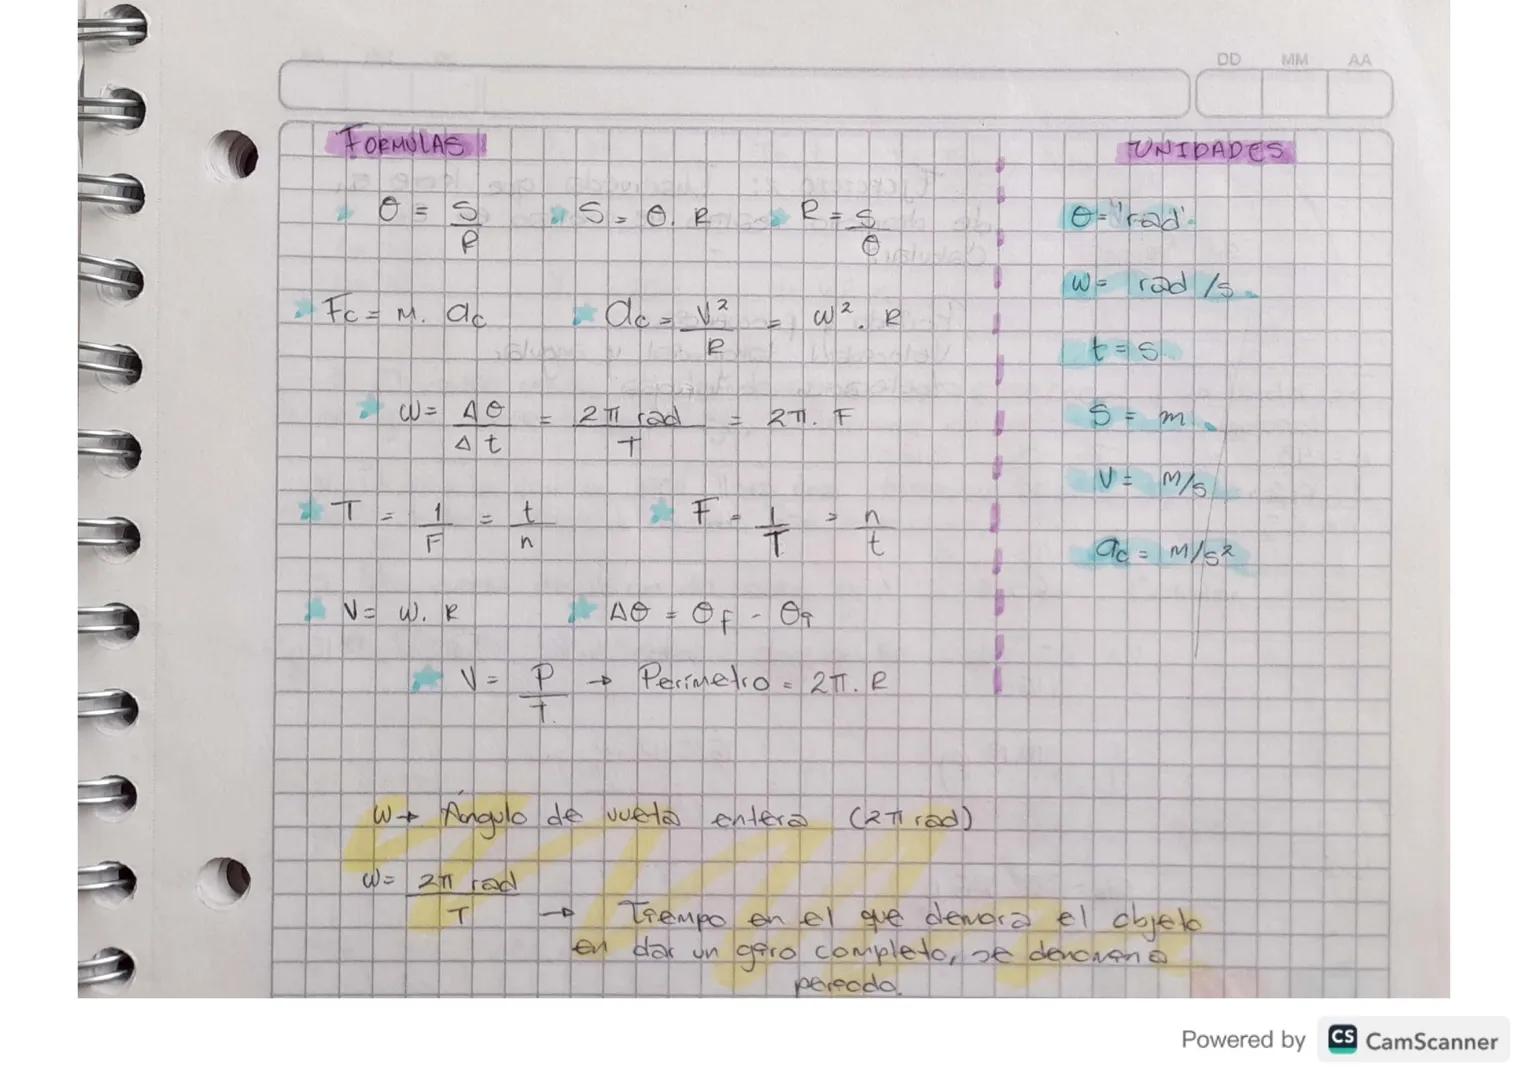 DD MM AA
FORMULAS
θ = S/R S = θ. R R = S/θ
Fc = M. ac ac = V²/R = ω². R
ω = Δθ/Δt = 2π rad/T = 2π. F
T = 1/F = t/n F = 1/T = n/t
V = ω. R Δθ = θf - θi
V = P/T. → Perímetro = 2π. R
UNIDADES
θ = "rad".
ω = rad /s.
t = s.
S = m.
V = M/s
ac = M/s²
ω → Ángulo de vuelta entera (2π rad)
ω = 2π rad/T → Tiempo en el que demora el objeto
en dar un giro completo, se denomina
periodo.
Powered by CS CamScanner